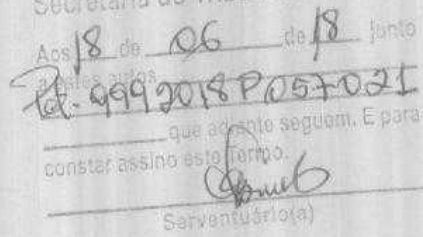 Secretaria do
Aos 18 de 06 de 18 junto
a estes autos
Pet. 9992018P057021
que adiante seguem. E para
constar assino este termo.
Serventuário(a)